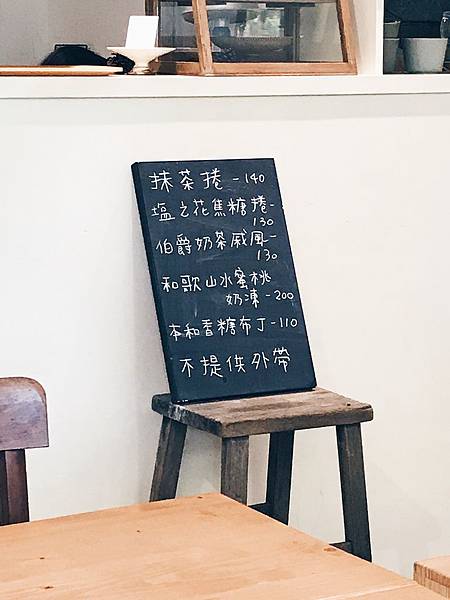 抹茶捲-140
塩之花焦糖捲-
130
伯爵奶茶戚風-
130
和歌山水蜜桃
奶凍-200
本和香糖布丁-110
不提供外帶